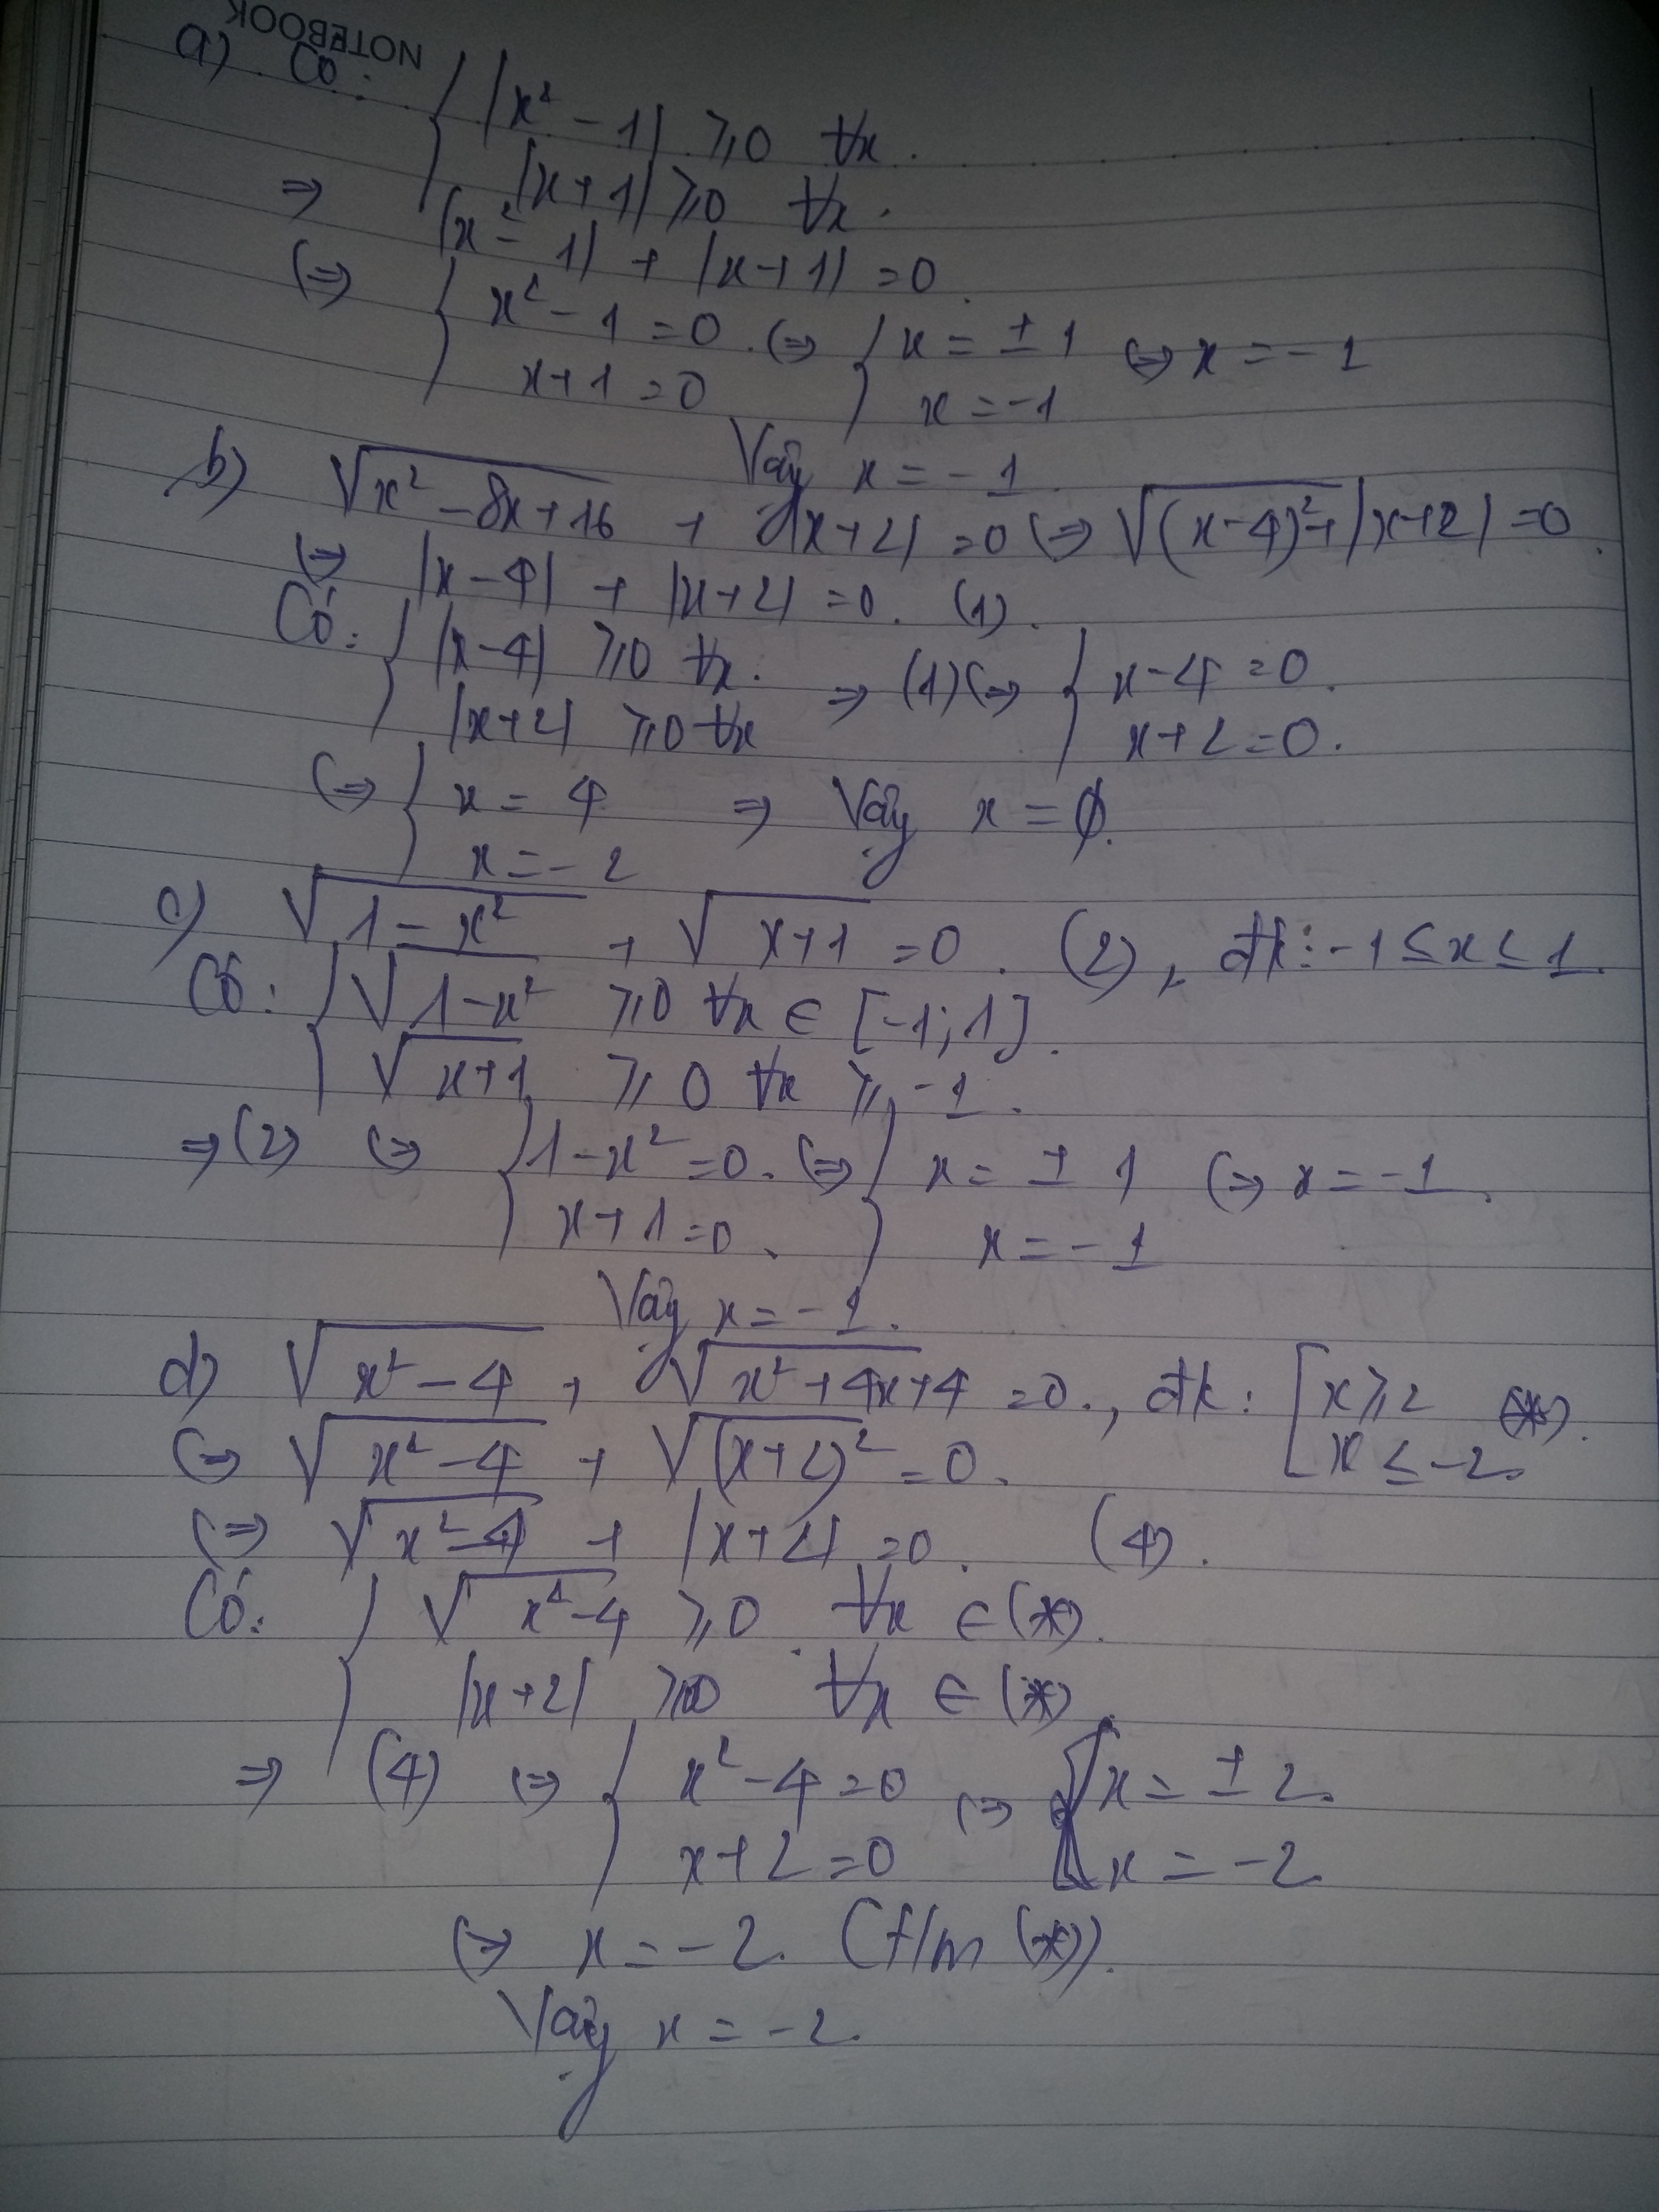 NOTEBOOK
a) Có:
{ |x² - 1| ≥ 0 ∀x.
|x + 1| ≥ 0 ∀x.
⇒ |x² - 1| + |x + 1| = 0.
⇔ { x² - 1 = 0. ⇔ { x = ± 1 ⇔ x = - 1
x + 1 = 0 x = -1
Vậy x = - 1
b) √(x² - 8x + 16) + |x + 2| = 0 ⇔ √(x - 4)² + |x + 2| = 0.
⇔ |x - 4| + |x + 2| = 0. (1).
Có: { |x - 4| ≥ 0 ∀x. ⇒ (1) ⇔ { x - 4 = 0.
|x + 2| ≥ 0 ∀x x + 2 = 0.
⇔ { x = 4 ⇒ Vậy x = ∅.
x = - 2
c) √(1 - x²) + √(x + 1) = 0. (2), đk: -1 ≤ x ≤ 1.
Có: { √(1 - x²) ≥ 0 ∀x ∈ [-1; 1].
√(x + 1) ≥ 0 ∀x ≥ -1.
⇒ (2) ⇔ { 1 - x² = 0. ⇔ { x = ± 1 ⇔ x = -1.
x + 1 = 0. x = - 1
Vậy x = - 1.
d) √(x² - 4) + √(x² + 4x + 4) = 0., đk: [ x ≥ 2 (*).
x ≤ -2.
⇔ √(x² - 4) + √(x + 2)² = 0.
⇔ √(x² - 4) + |x + 2| = 0. (4).
Có: { √(x² - 4) ≥ 0 ∀x ∈ (*).
|x + 2| ≥ 0 ∀x ∈ (*)
⇒ (4) ⇔ { x² - 4 = 0 ⇔ { x = ± 2.
x + 2 = 0 x = - 2
⇔ x = - 2. (t/m (*)).
Vậy x = - 2.